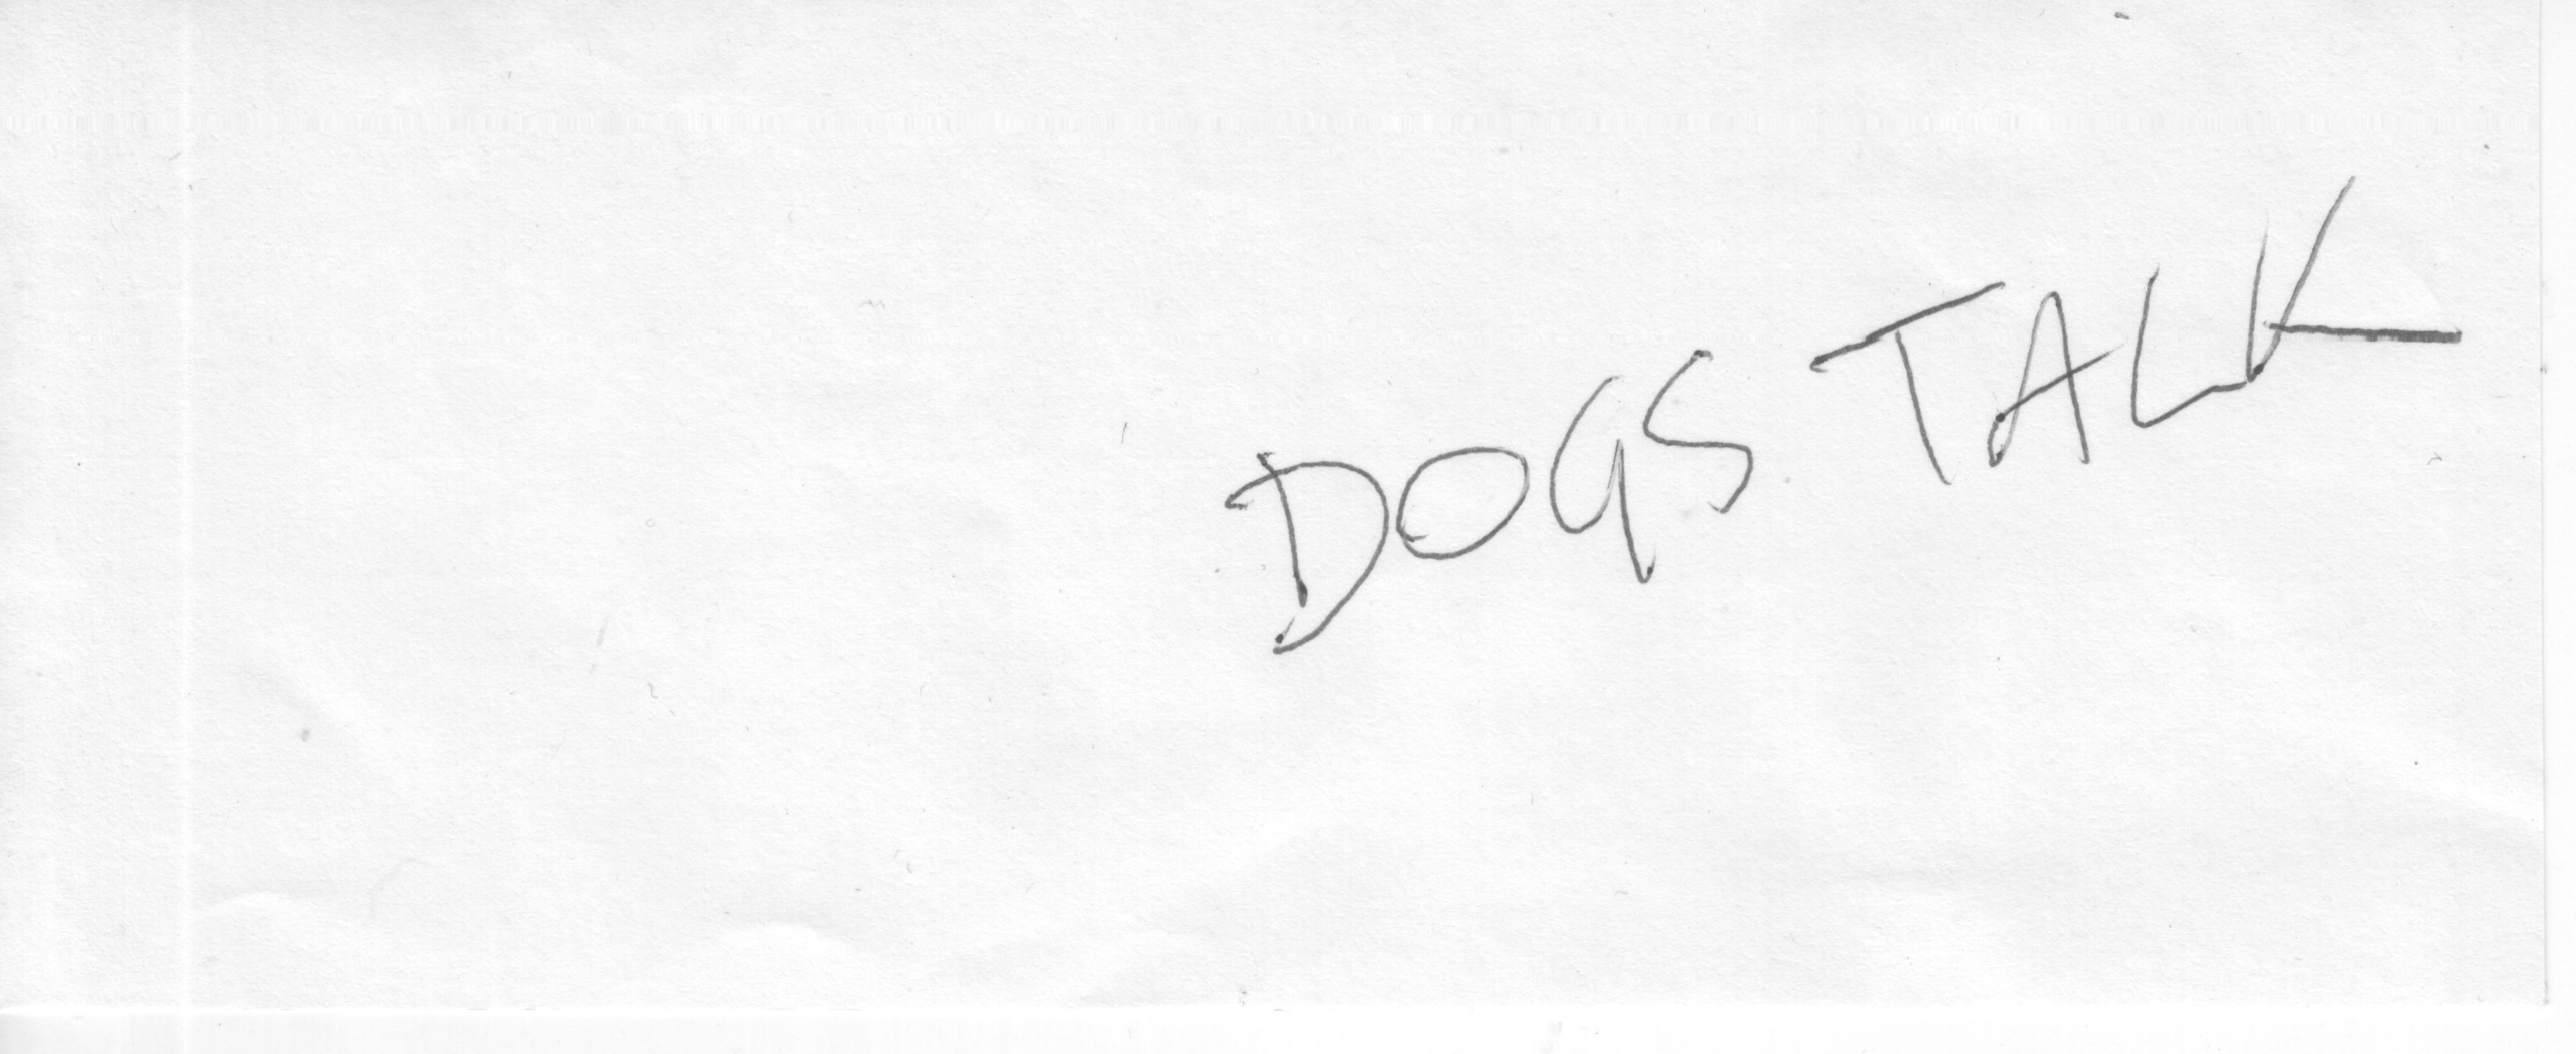 DOGS TALK